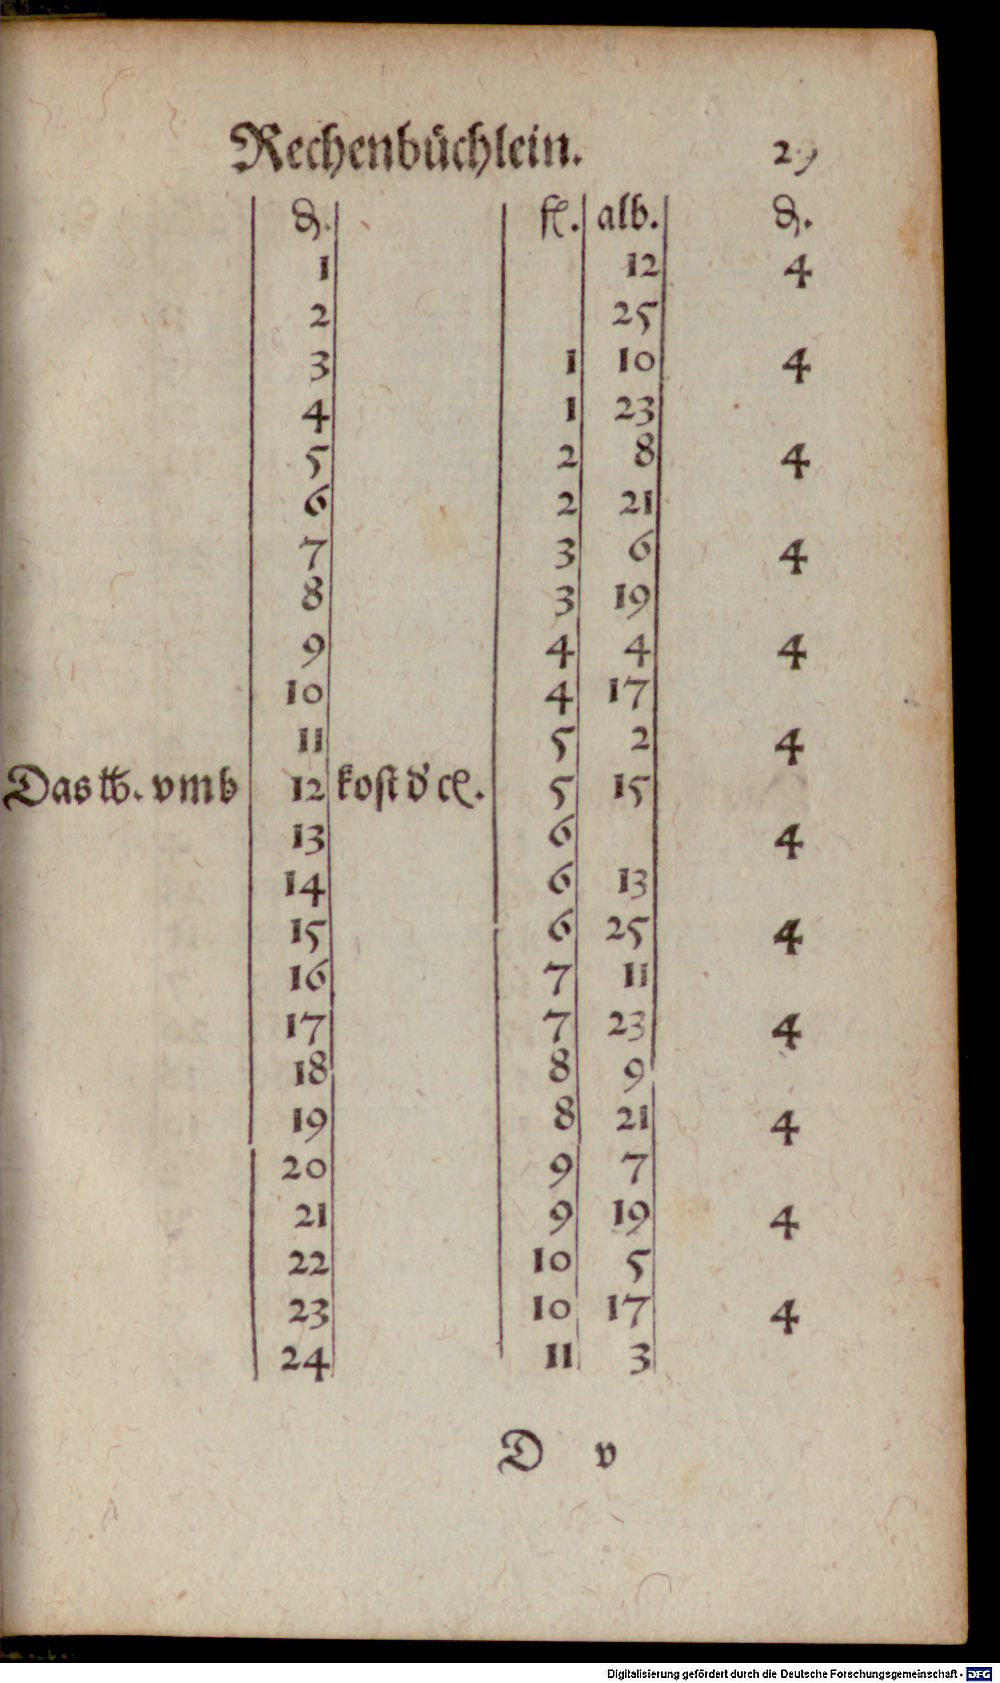 Rechenbüchlein. 29
₰. fl. alb. ₰.
1 12 4
2 25
3 1 10 4
4 1 23
5 2 8 4
6 2 21
7 3 6 4
8 3 19
9 4 4 4
10 4 17
11 5 2 4
Das ℔. vmb 12 kost d' cꝭ. 5 15
13 6 4
14 6 13
15 6 25 4
16 7 11
17 7 23 4
18 8 9
19 8 21 4
20 9 7
21 9 19 4
22 10 5
23 10 17 4
24 11 3
D v
Digitalisierung gefördert durch die Deutsche Forschungsgemeinschaft - DFG